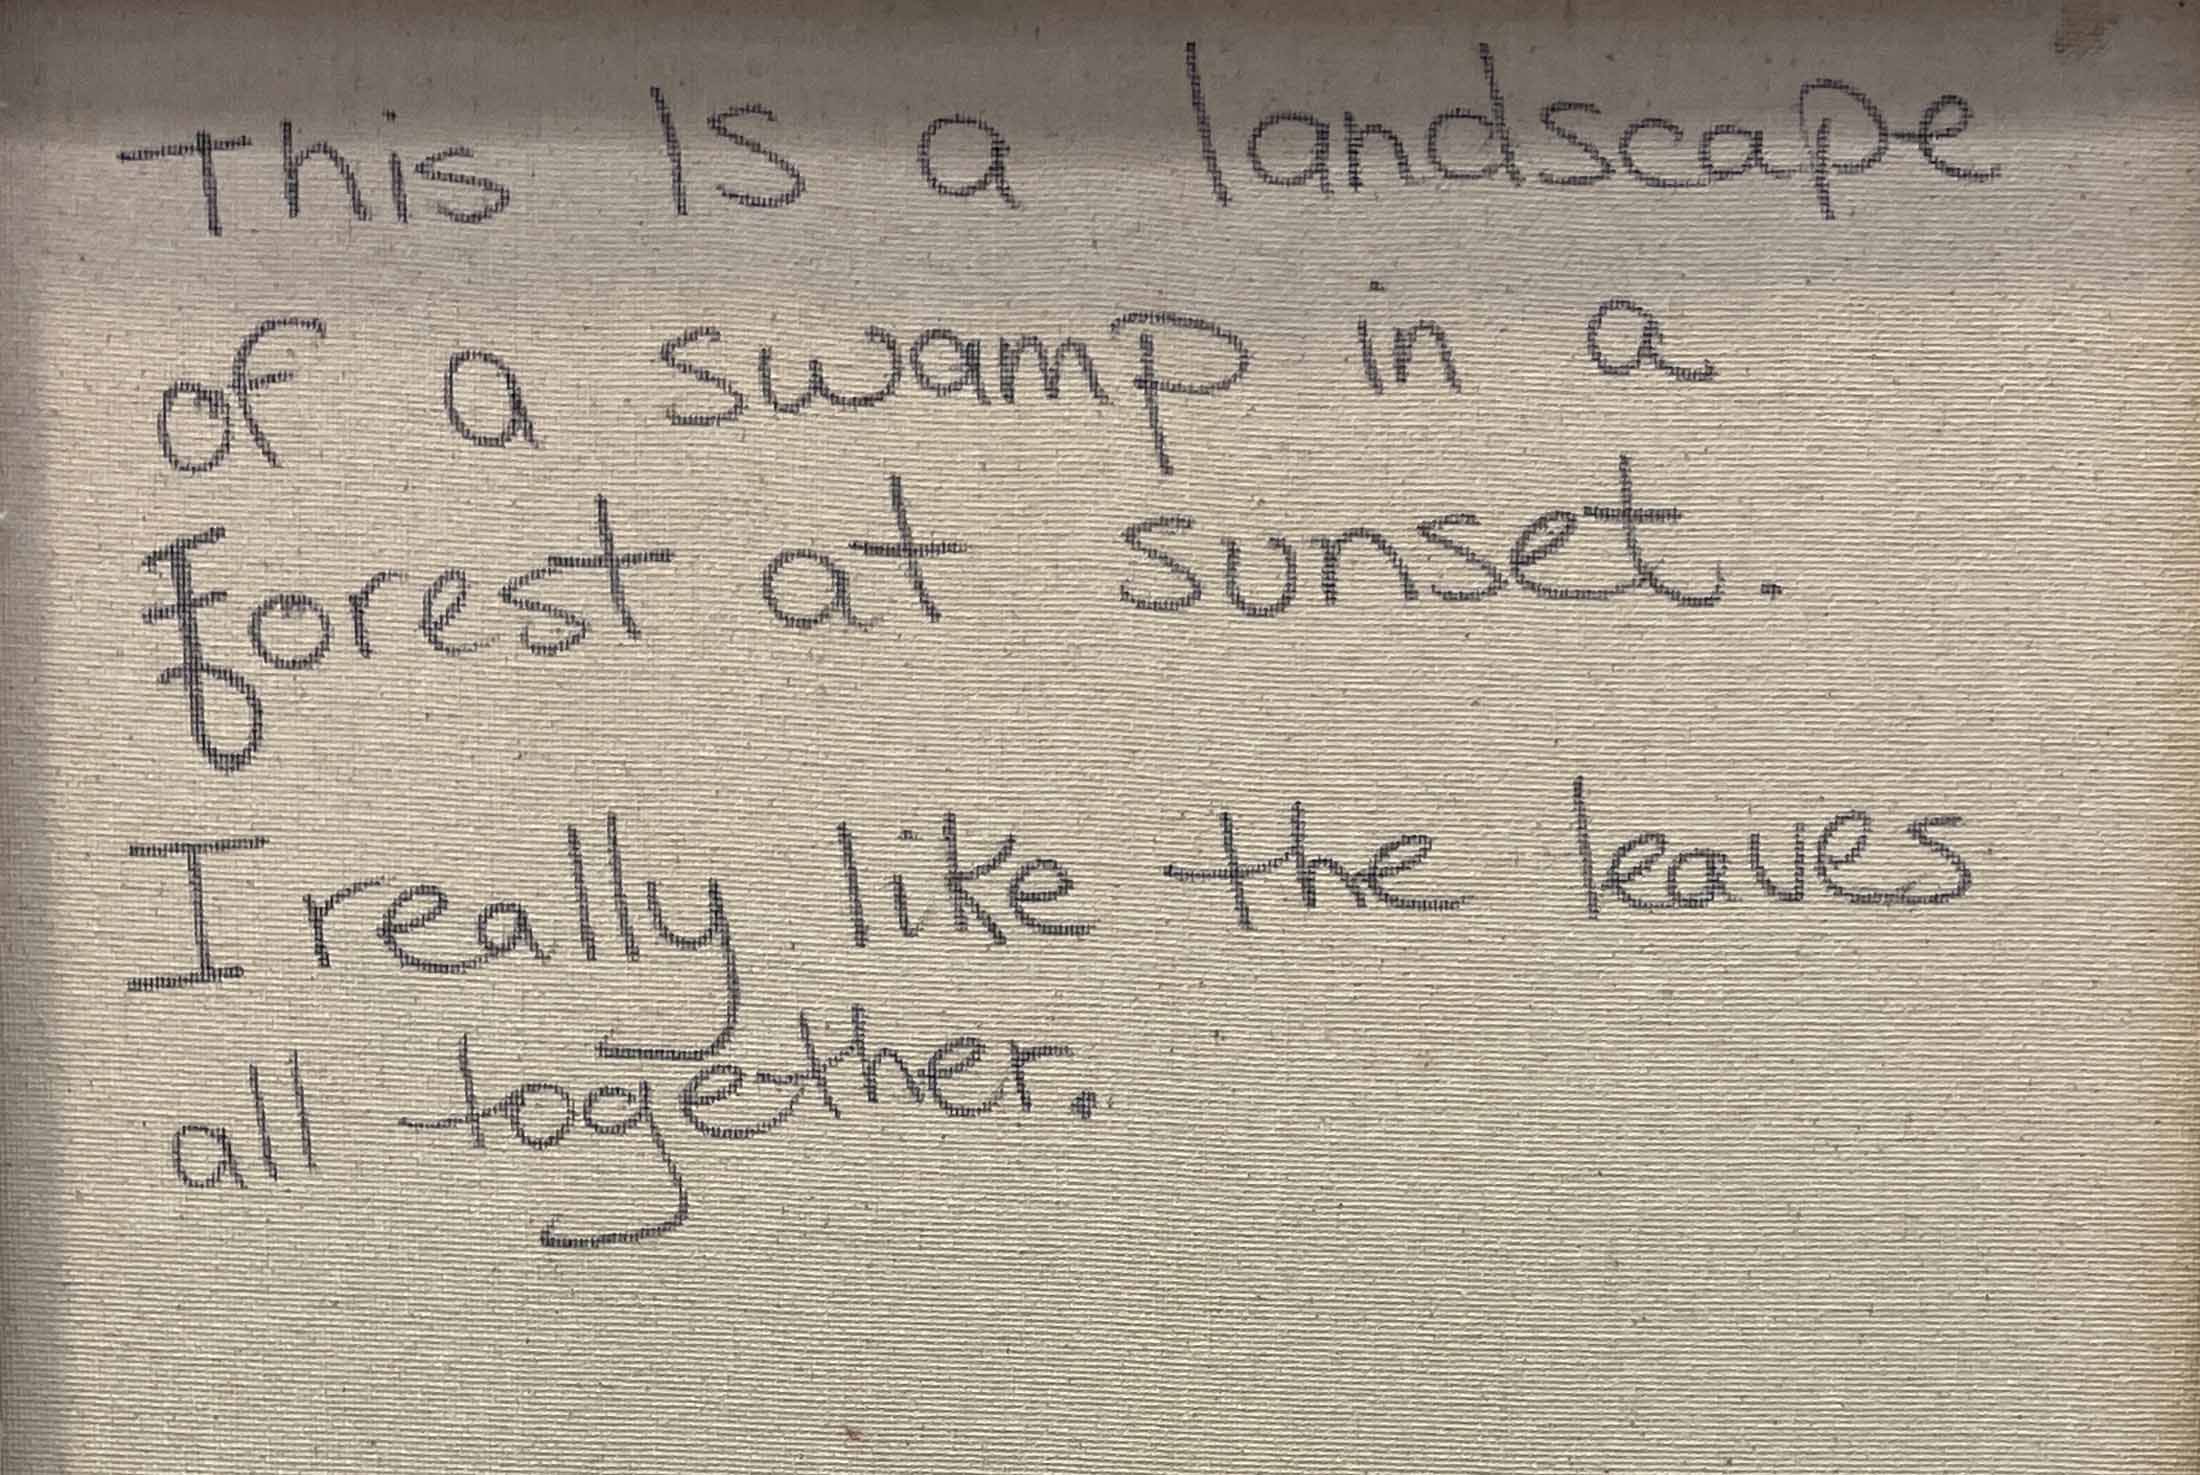 This Is a landscape
of a swamp in a
forest at sunset.
I really like the leaves
all together.